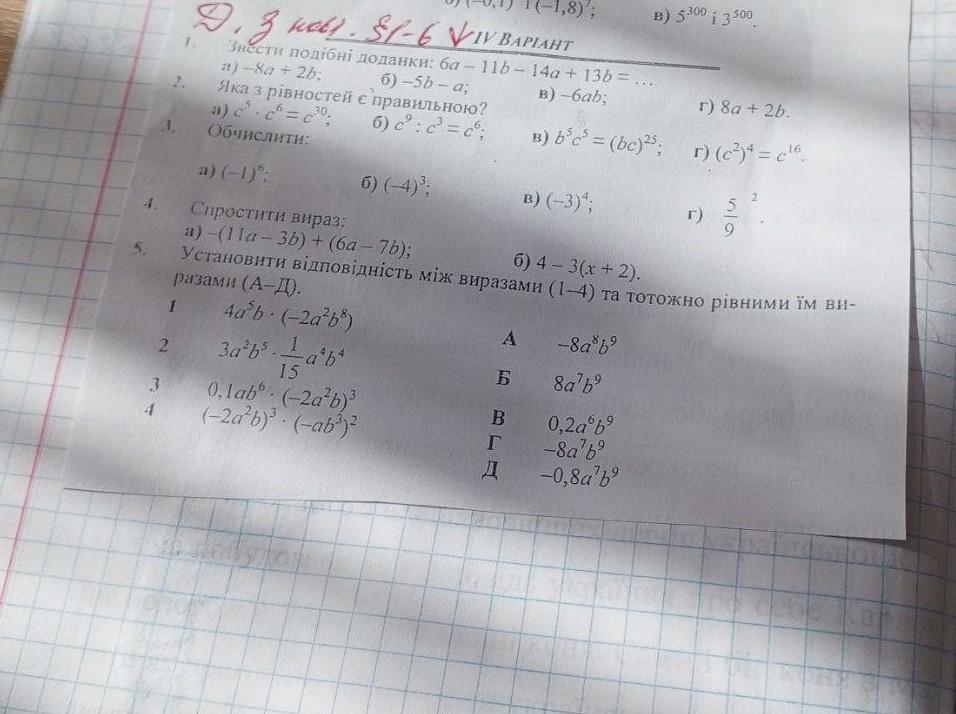 б) (−0,1) і (−1,8)⁷;
в) 5³⁰⁰ і 3⁵⁰⁰.
§1-6 ↓ IV ВАРІАНТ
1. Звести подібні доданки: 6a – 11b – 14a + 13b = ...
а) –8a + 2b; б) –5b – a; в) –6ab; г) 8a + 2b.
2. Яка з рівностей є правильною?
а) c⁵ · c⁶ = c³⁰; б) c⁹ : c³ = c⁶; в) b⁵c⁵ = (bc)²⁵; г) (c²)⁴ = c¹⁶.
3. Обчислити:
а) (–1)⁶; б) (–4)³; в) (–3)⁴; г) 5/9 ².
4. Спростити вираз:
а) –(11a – 3b) + (6a – 7b); б) 4 – 3(x + 2).
5. Установити відповідність між виразами (1–4) та тотожно рівними їм ви-
разами (А–Д).
1 4a⁵b · (–2a²b⁸) А –8a⁸b⁹
2 3a²b⁵ · 1/15 a⁴b⁴ Б 8a⁷b⁹
3 0,1ab⁶ · (–2a²b)³ В 0,2a⁶b⁹
4 (–2a²b)³ · (–ab³)² Г –8a⁷b⁹
Д –0,8a⁷b⁹